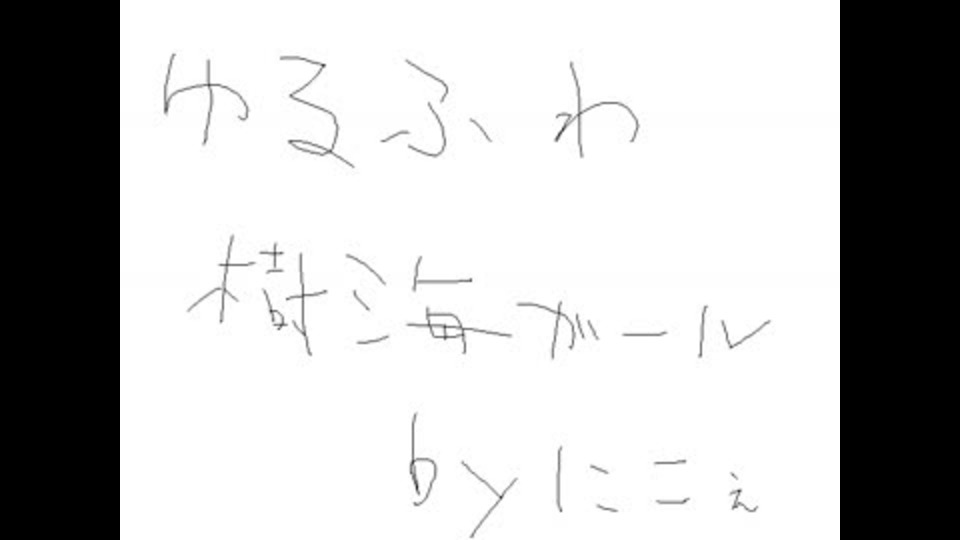 ゆるふわ
樹海ガール
byにこぇ